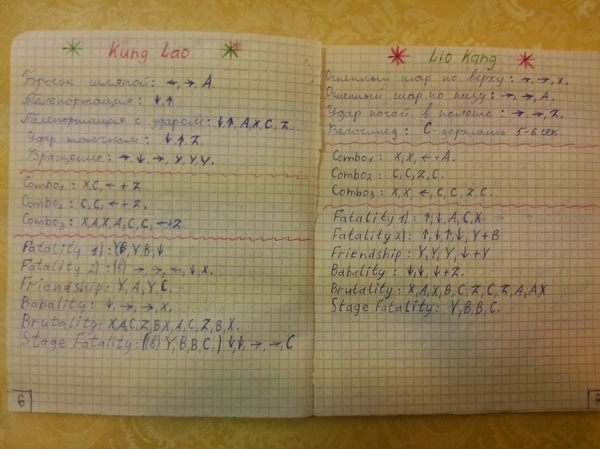 Kung Lao
Бросок шляпой: ←, →, A.
Телепортация: ↓,↑
Телепортация с ударом: ↓,↑, A,X,C,Z.
Удар волчком: ↓,↑,Z.
Вращение: →,↓,→, Y,Y,Y.
Combo1: X,C,←+Z.
Combo2: C,C,←+Z.
Combo3: X,A,X,A,C,C,←+Z
Fatality 1): YB,Y,B,↓
Fatality 2): (B) →,→,←,↓,X.
Friendship: Y,A,Y,C.
Babality: ↓,→,→,X.
Brutality: X,A,C,Z,B,X,A,C,Z,B,X.
Stage Fatality: ((B) Y,B,B,C.) ↓,↓,→,→,C
6
Lio Kang
Огненный шар по верху: →,→,X.
Огненный шар по низу: →,→,A.
Удар ногой в полёте: →,→,Z.
Велосипед: C-держать 5-6 сек
Combo1: X,X,←+A.
Combo2: C,C,Z,C.
Combo3: X,X,←,C,C,Z,C.
Fatality 1): ↑,↓,A,C,X
Fatality 2): ↑,↓,↑,↓,Y+B
Friendship: Y,Y,Y,↓+Y
Babality: ↓,↓,↓+Z.
Brutality: X,A,X,B,C,Z,C,Z,A,A,X
Stage Fatality: Y,B,B,C.
7